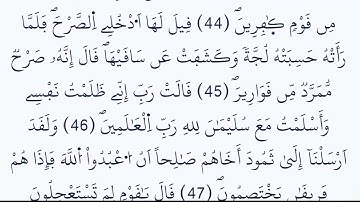 مِن قَوْمٍ كٰفِرِينَۖ (44) قِيلَ لَهَا اَ۟دْخُلِے اِ۬لصَّرْحَۖ فَلَمَّا
رَأَتْهُ حَسِبَتْهُ لُجَّةً وَكَشَفَتْ عَن سَاقَيْهَاۖ قَالَ إِنَّهُۥ صَرْحٌ
مُّمَرَّدٌ مِّن قَوَارِيرَۖ (45) قَالَتْ رَبِّ إِنِّے ظَلَمْتُ نَفْسِے
وَأَسْلَمْتُ مَعَ سُلَيْمَٰنَ لِلهِ رَبِّ اِ۬لْعَٰلَمِينَۖ (46) وَلَقَدَ
اَرْسَلْنَآ إِلَىٰ ثَمُودَ أَخَاهُمْ صَٰلِحاً اَنُ اُ۟عْبُدُواْ اُ۬للَّهَ فَإِذَا هُمْ
فَرِيقَٰنِ يَخْتَصِمُونَۖ (47) قَالَ يَٰقَوْمِ لِمَ تَسْتَعْجِلُونَ